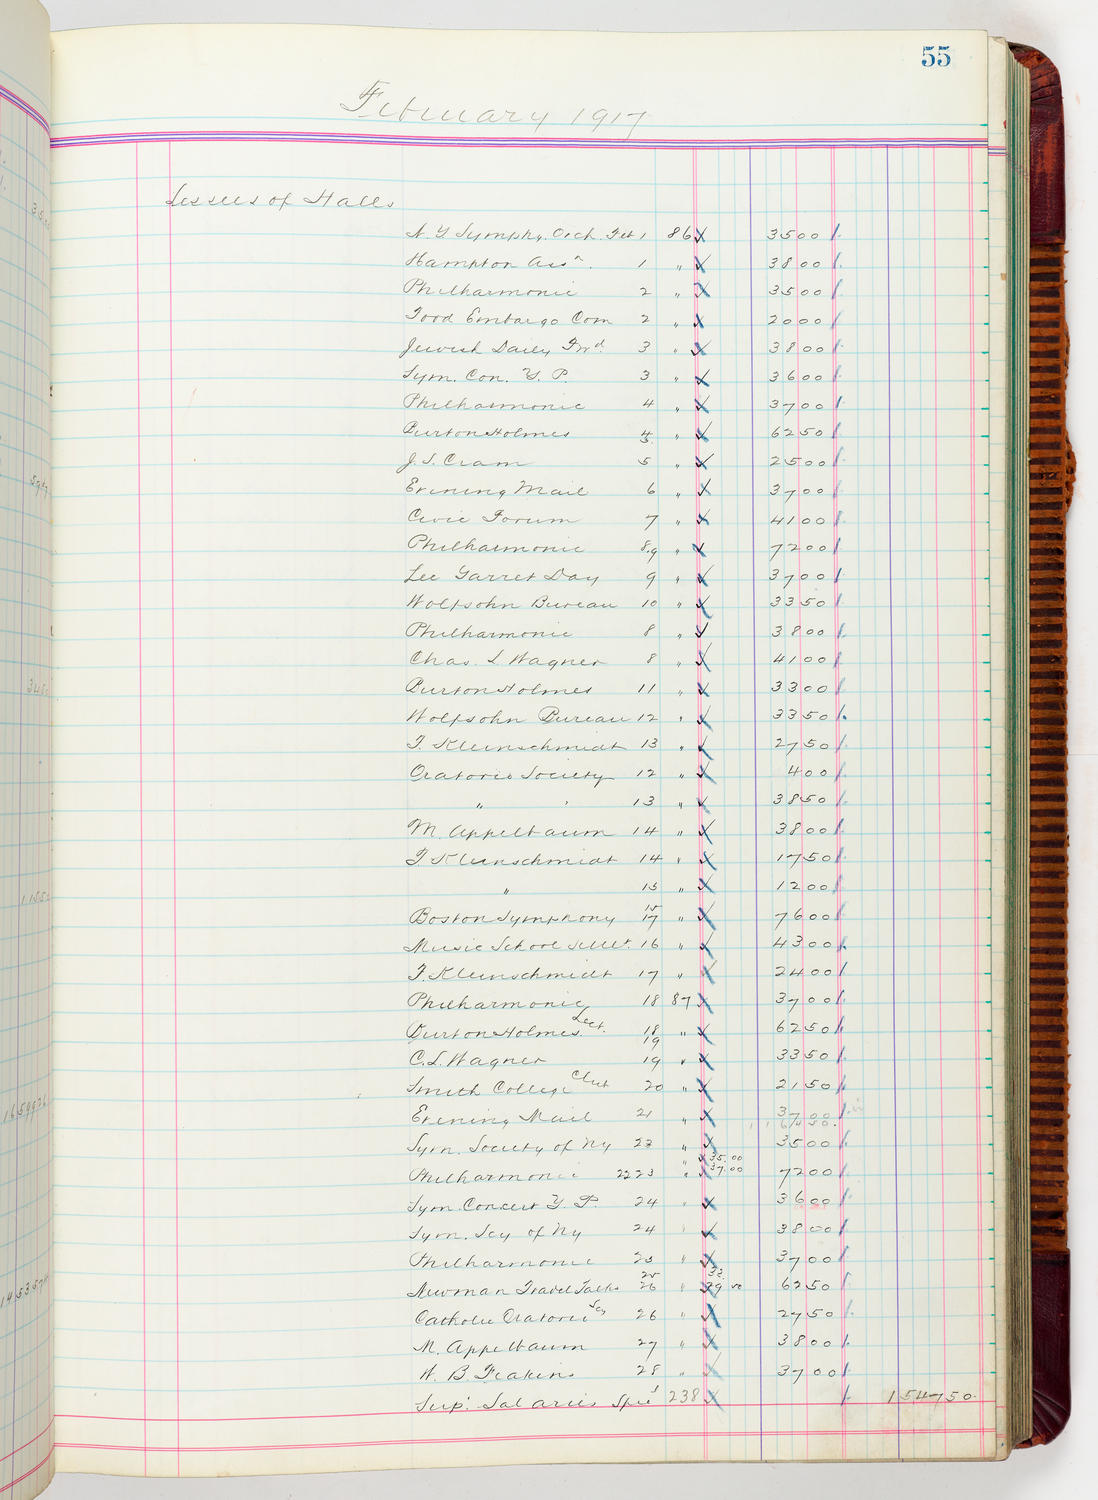 55
February 1917
Lessees of Halls
N. Y. Symphy. Orch. Feb 1 86 3500
Hampton Assn. 1 " 3800
Philharmonic 2 " 3500
Food Embargo Com 2 " 2000
Jewish Daily Fwd. 3 " 3800
Sym. Con. Y. P. 3 " 3600
Philharmonic 4 " 3700
Burton Holmes 4 5. " 6250
J. S. Cram 5 " 2500
Evening Mail 6 " 3700
Civic Forum 7 " 4100
Philharmonic 8.9 " 7200
Lee Garret Day 9 " 3700
Wolfsohn Bureau 10 " 3350
Philharmonic 8 " 3800
Chas. L Wagner 8 " 4100
Burton Holmes 11 " 3300
Wolfsohn Bureau 12 " 3350
F. Kleinschmidt 13 " 2750
Oratorio Society 12 " 400
" " 13 " 3850
M. Appelbaum 14 " 3800
F Kleinschmidt 14 " 1750
" 15 " 1200
Boston Symphony 15 17 " 7600
Music School Settlt. 16 " 4300
F. Kleinschmidt 17 " 2400
Philharmonic 18 87 3700
Burton Holmes Lect. 18 19 " 6250
C. L. Wagner 19 " 3350
Smith College Club 20 " 2150
Evening Mail 21 " 3700
Sym. Society of Ny 23 " 3500
" 35.00
Philharmonic 22 23 " 37.00 7200
Sym Concert Y. P. 24 " 3600
Sym. Scy of Ny 24 " 3800
Philharmonic 25 " 3700
Newman Travel Talks 25 26 " 33. 29 50 6250
Catholic Oratorio Scy 26 " 2750
M. Appelbaum 27 " 3800
W. B. Feakins 28 " 3700
Sup: Salaries Spe'l 238 154750.